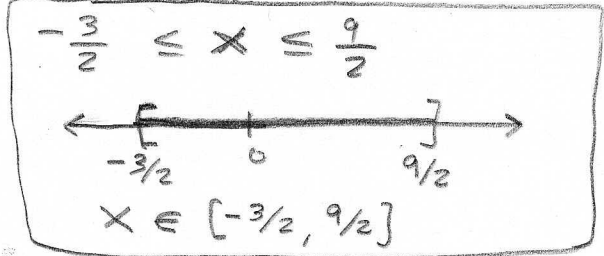 -3/2 ≤ x ≤ 9/2
-3/2 0 9/2
x ∈ [-3/2, 9/2]